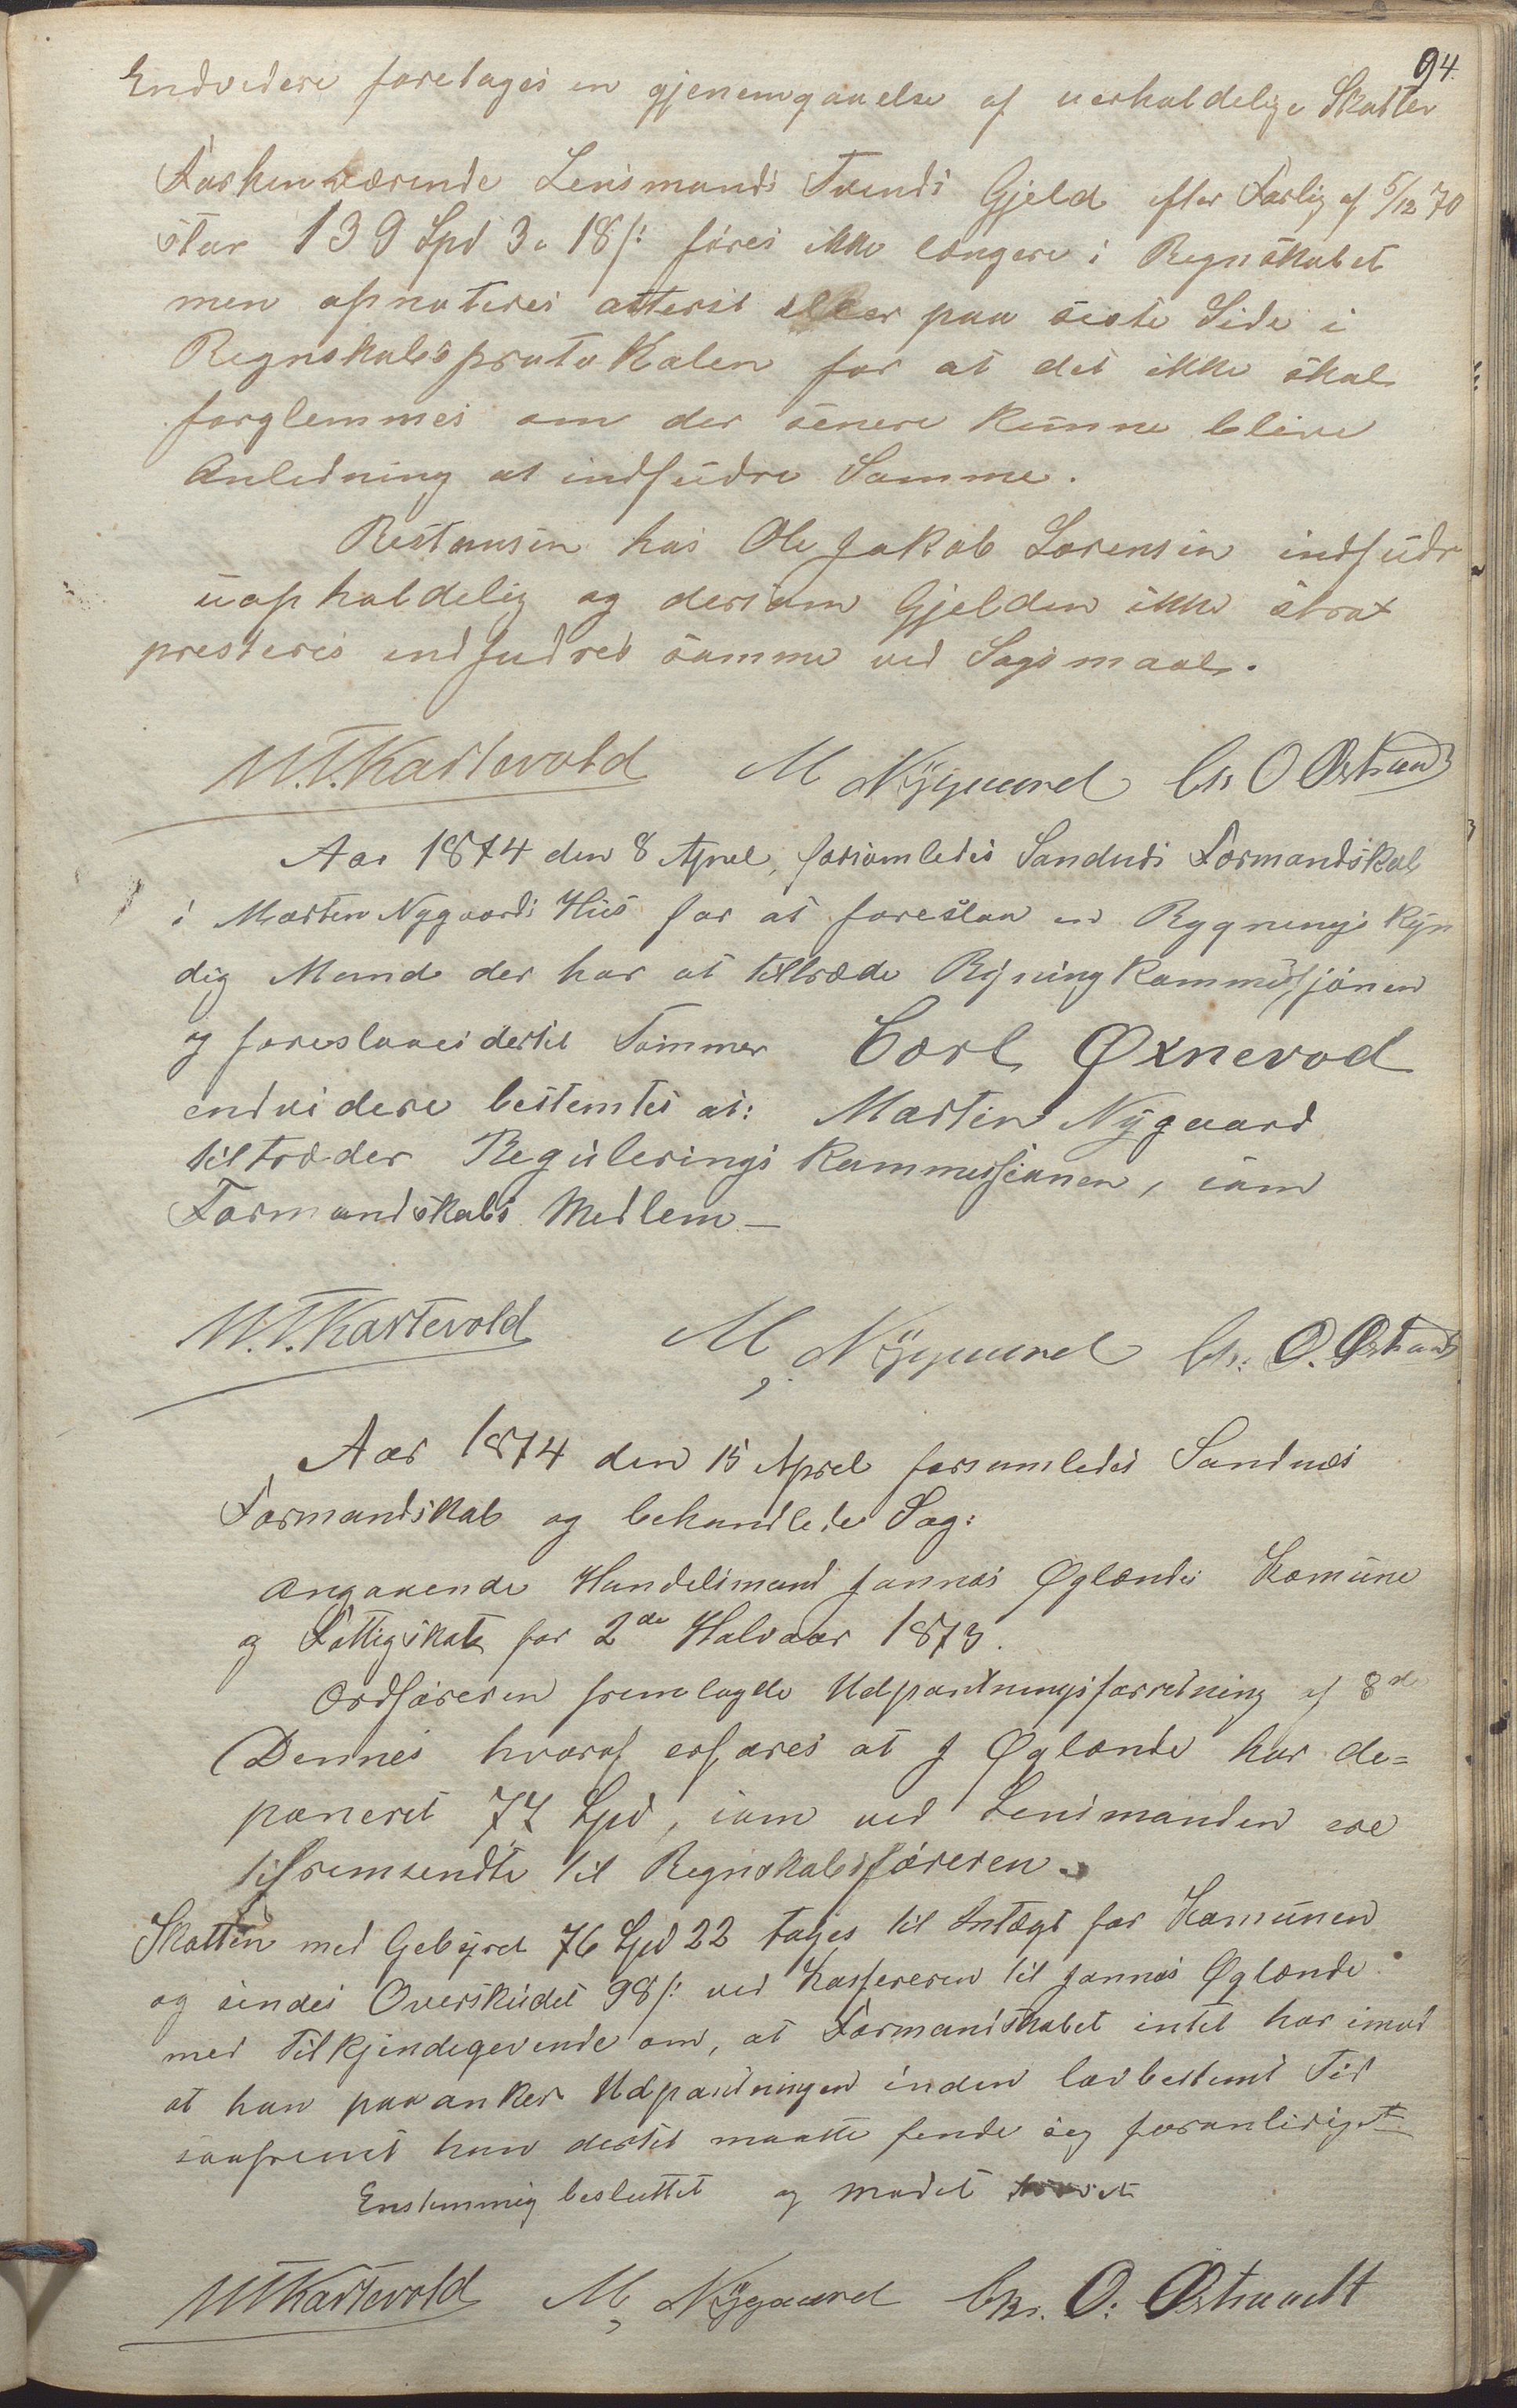 94.
Endvidere foretoges en gjenemgaaelse af uerholdelige Skatter
Forhenværende Lensmands Tveds Gjeld efter Forlig af 5/12 70
stor 139 Spd 3 o 18 /: føres ikke længere i Regnskabet
men opnoteres atterst eller paa siste Side i
Regnskabsprotokolen for at det ikke skal
forglemmes om der senere kunne blive
Anledning at indfudre Samme.
Restansen hos Ole Jakob Lorensen indfudr
uopholdelig og dersom Gjelden ikke strax
presteres indfudres samme ved Sagsmaal.
M.T. Kartevold M Nÿgaard Chr O Østraadt
Aar 1874 den 8 Aprel, forsamledes Sandnæs Formandskab
i Morten Nygaards Hus for at foreslaa en Bygnings kyn
dig Mand der har at tiltræde Bygning Kommissjonen
og foreslaaes dertil Tømmer Carl Øxnevad
endvidere bestemtes at: Morten Nÿgaard
tiltræder Regulerings Kommissionen, som
Formandskabs Medlem –
M.T. Kartevold M, Nÿgaard Chr: O. Østraadt
Aar 1874 den 15 Aprel forsamledes Sandnæs
Formandskab og behandlede Sag:
angaaende Handelsmand Jonnas Øglænds Komune
og Fattigskat for 2de Halvaar 1873.
Ordføreren fremlagde Udpantningsforretning af 8de
Dennes hvoraf erfares at J Øglænd har de=
poneret 77 Spd, som ved Lensmanden ere
tilfremsendte til Regnskabsføreren.
Skatten med Gebyret 76 Spd 22 tages til Intægt for Komunen
og sendes Overskudet 98 /: ved Kassereren til Jonnas Øglænd
med Tilkjendegevende om, at Formandskabet intet har imod
at han paaanker Udpantningen inden lovbestemt Tid
saafremt han dertil maatte finde sig foranlediget
Enstemmig besluttet og mødet hævet
M T Kartevold M, Nÿgaard Chr. O: Østraadt